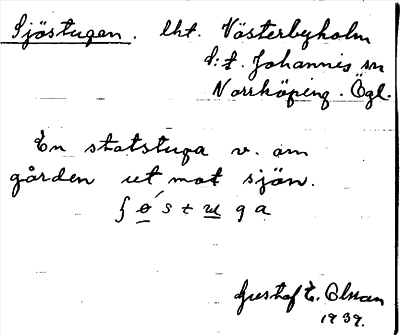 Sjöstugan. lht. Västerbyholm
d:t. Johannis sn
Norrköping. Ögl.
En statstuga v. om
gården ut mot sjön.
ʃ ø´ s t u g a
Gustaf E. Olsson
1939.